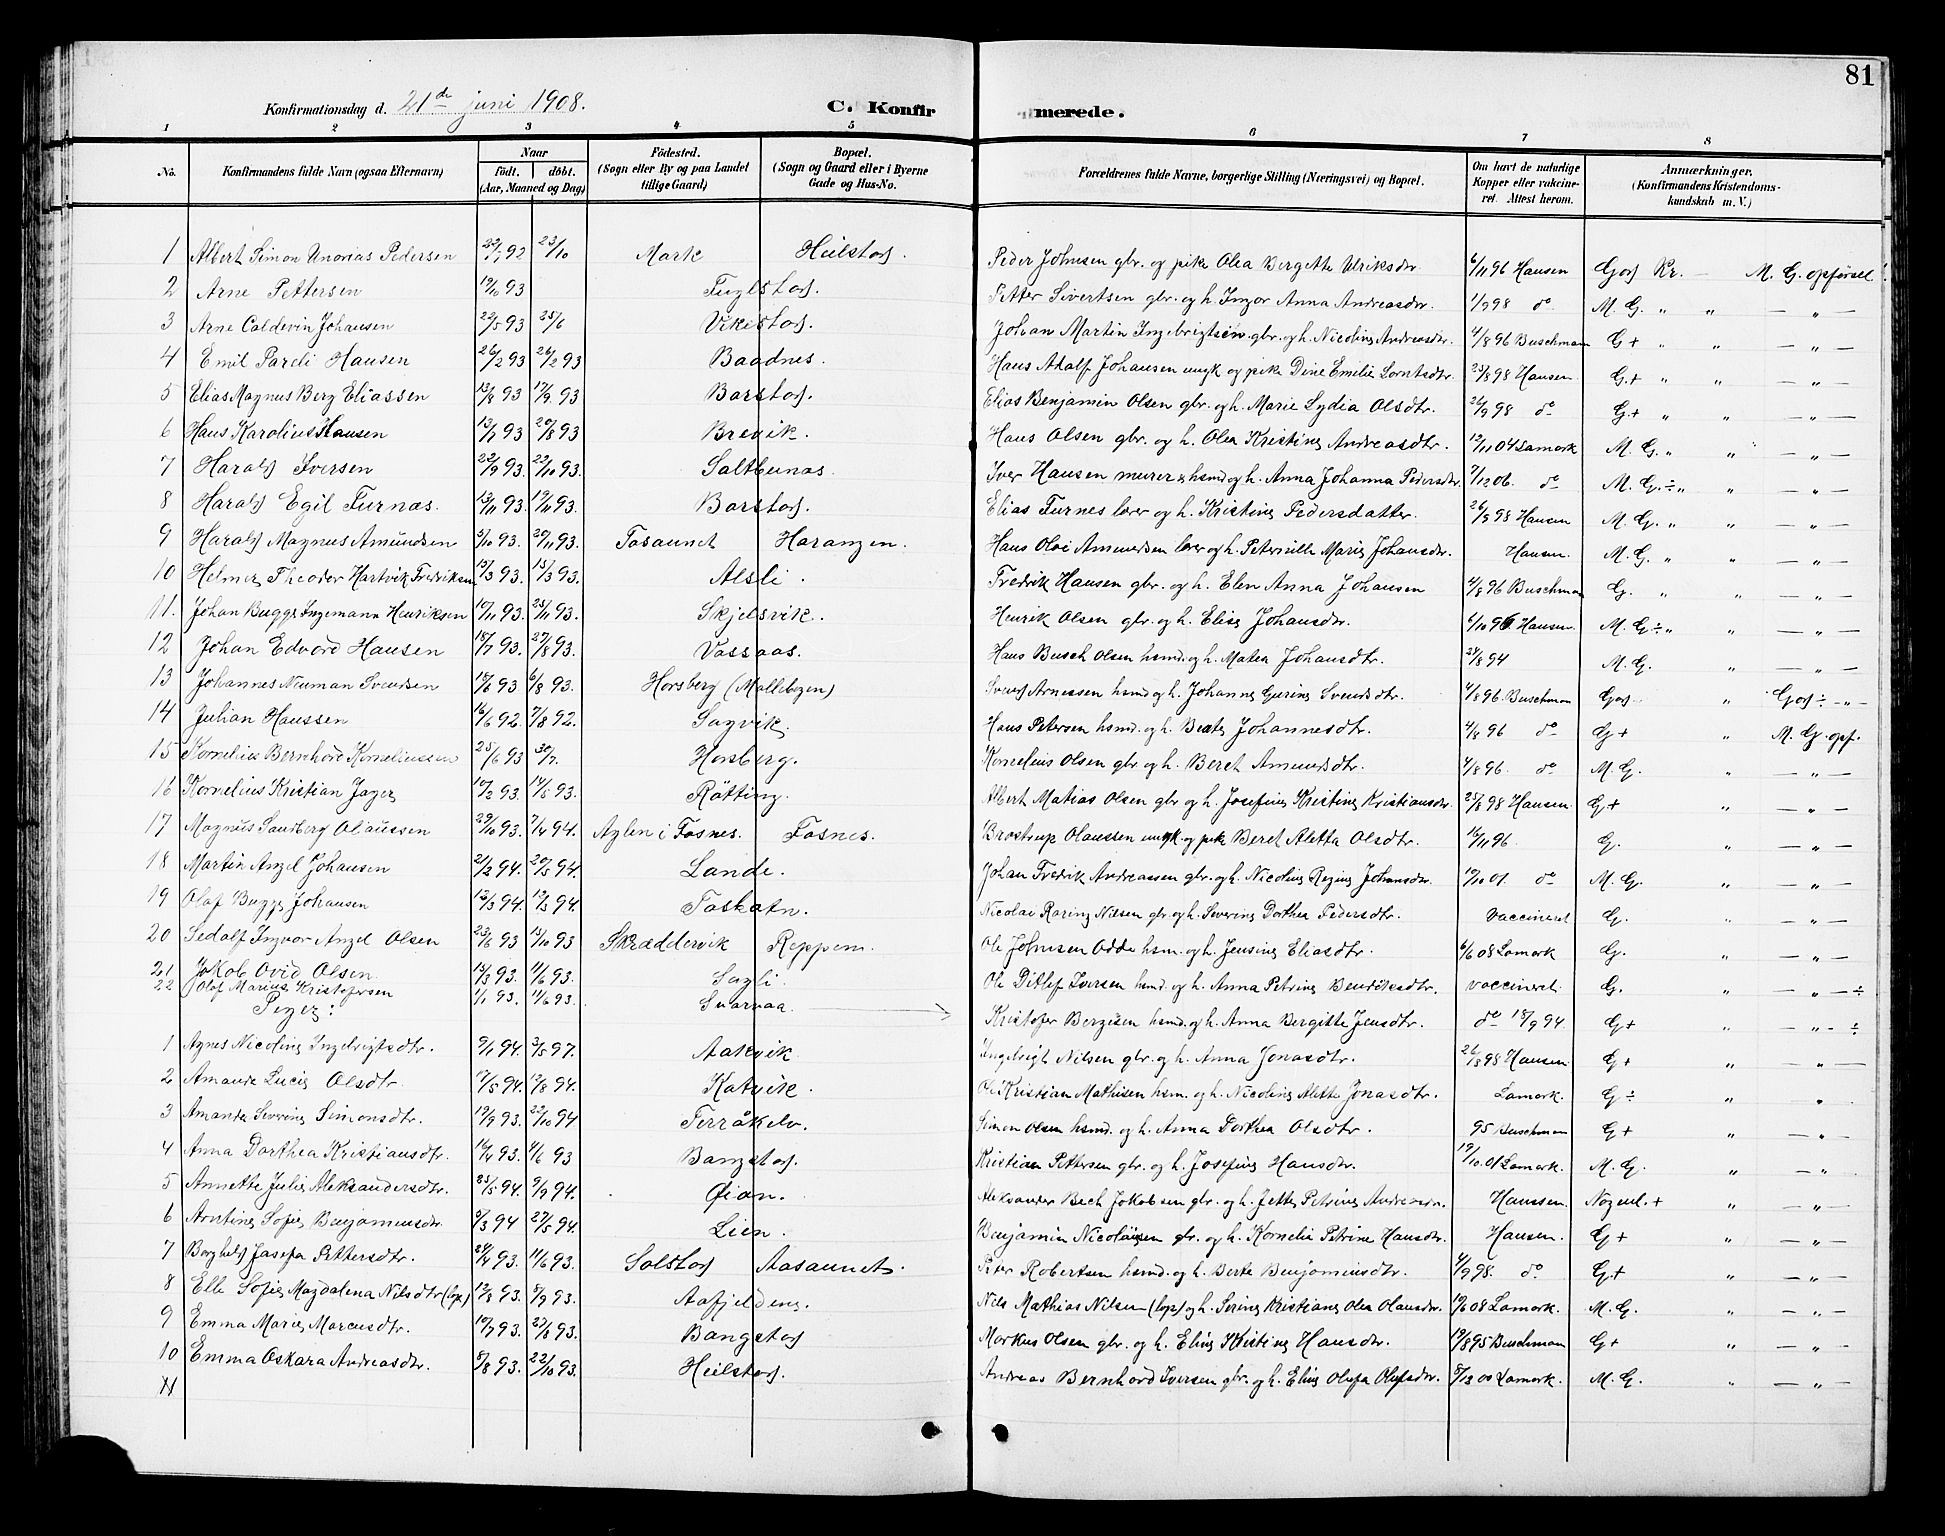 81
Konfirmationsdag d. 21de juni 1908. C. Konfir merede.
1 2 3 4 5 6 7 8
No. Konfirmandens fulde Navn (ogsaa Efternavn) Naar født. døbt. (Aar, Maaned og Dag) Fødested. (Sogn eller By og paa Landet tillige Gaard) Bopæl. (Sogn og Gaard eller i Byerne Gade og Hus-No. Forældrenes fulde Navne, borgerlige Stilling (Næringsvei) og Bopæl. Om havt de naturlige Kopper eller vakcineret. Attest herom. Anmærkninger. (Konfirmandens Kristendomskundskab m. V.)
1 Albert Simon Unorias Pedersen 92 23/10 Mark Heilstod. Peder Johnsen gbr. og pike Olea Bergitte Ulriksdtr. 6/11 96 Hansen God Kr. — M. G. opførsel
2 Arne Pettersen 19/10 93 Fuglstad. Petter Sivertsen gbr. og h. Ingor Anna Andreasdtr. 1/9 98 do M. G. " " — " —
3 Arne Caldevin Johansen 22/5 93 25/6 Vikestad. Johan Martin Ingebrigtsen gbr. og h. Nicoline Andreasdtr. 4/8 96 Buschman G+ " " — " —
4 Emil Pardi Hansen 26/2 93 26/2 93 Baadnes. Hans Adolf Johansen ungk og pike Dine Emilie Lorntsdtr. 25/8 98 Hansen. G+ " " — " —
5 Elias Magnus Berg Eliassen 13/8 93 17/9. 93 Barstad. Elias Benjamin Olsen gbr. og h. Marie Lydia Olsdtr. 26/9 98 do G+ " " — " —
6 Hans Karolius Hansen 13/7 93 20/8 93 Brevik. Hans Olsen gbr. og h. Olea Kristine Andreasdtr. 12/11 04 Lamork M. G. " " — " —
7 Harald Iversen 22/9 93 22/10 93. Saltbunas. Iver Hansen murer & hsmd og h. Anna Johanna Pedersdtr. 7/12 06. do M. G. ÷ " " — " —
8 Harald Egil Furnes. 13/11 93 19/11 93. Barstad. Elias Furnes lærer og h. Kristine Pedersdatter. 26/8 98 Hansen M. G. " " — " —
9 Harald Magnus Amundsen 3/10 93. 20/11 93. Fosaunet Haranzen. Hans Oloi Amundsen lærer og h. Peternille Marie Johansdtr. Hansen. M. G. " " — " —
10 Helmer Theodor Hartvik Fredriksen 13/3 93. 15/3 93. Alsli. Fredrik Hansen gbr. og h. Elen Anna Johansen 4/8 96 Buschman G. " " — " —
11. Johan Bugge Ingemann Henriksen 10/11 93. 25/11 93. Skjelsvik. Henrik Olsen gbr. og h. Elise Johansdtr. 6/10 96. Hansen. M. G ÷ " " — " —
12 Johan Edvard Hansen 18/7 93. 27/8 93. Vassaas. Hans Busch Olsen hsmd. og h. Matea Johansdtr. 24/8 94 M. G. " — " —
13 Johannes Neuman Svendsen 12/6 93 6/8 93. Horsberg (Mollebogen) Svend Arnessen hsmd og h. Johanne Gurine Svendsdtr. 4/8 96. Buschman God. " God ÷ - " -
14 Julian Hanssen 16/6 92. 7/8 92. Sagvik. Hans Petersen hsmd. og h. Beate Johannesdtr. 4/8 96 do G+ " M. G. opf.
15 Kornelius Bernhard Korneliussen 25/6 93 30/7. Horsberg. Kornelius Olsen gbr. og h. Beret Amundsdtr. 4/8 96. do M. G. " — " —
16 Kornelius Kristian Jager 10/2 93. 14/5 93. Røtting. Albert Matias Olsen gbr og h. Josefine Kristine Kristiansdtr. 25/8 98 Hansen. G+ " — " —
17 Magnus Sandberg Olaussen 29/10 93. 7/4 94. Aglen i Fosnes. Fosnes. Brostrup Olaussen ungk. og pike Beret Aletta Olsdtr. 16/11 96. G. " — " —
18 Martin Angel Johansen 21/2 94. 20/5 94. Lande. Johan Fredrik Andreassen gbr. og h. Nicoline Regine Johansdtr. 19/10 01. do M. G. " — " —
19 Olaf Bugge Johansen 12/3 94. 12/3 94. Foskatn. Nicolai Roring Nilsen gbr. og h. Severine Dorthea Pedersdtr. vaccineret G. " — " —
20 Sedolf Ingvar Angel Olsen 23/6 93 15/10 93 Skræddervik Reppem. Ole Johnsen Odde hsm. og h. Jensine Eliasdtr. 6/6 08 Lamork G. " — " —
21 Jakob Ovid Olsen. 14/3 93. 11/6 93. Sagli. Ole Ditlef Iversen hsmd. og h. Anna Petrine Benriksdtr. vaccineret. G. " — " — ÷
22 Olof Marius Kristofersen 1/1 93. 11/6 93. Svarvaa. Kristofer Bergesen hsmd. og h. Anna Bergitte Jensdtr. do 18/9 94. G+ " — " - ÷
Piger:
1 Agnes Nicoline Ingebrigtsdtr. 9/1 94. 3/5 97. Aakvik. Ingebrigt Nilsen gbr. og h. Anna Jonasdtr. 26/8 98 Hansen. G+ " — " —
2 Amanda Lucie Olsdtr. 17/5 94. 12/8 94. Katvik. Ole Kristian Mathisen hsm. og h. Nicoline Alette Jonasdtr. Lamork. G ÷ " "
3 Amanda Severine Simonsdtr. 19/9 93. 22/10 94 Ferråkelv. Simon Olsen hsmd. og h. Anna Dorthea Olsdtr. 95 Buschman G+ " — " —
4 Anna Dorthea Kristiansdtr. 14/4 93. 4/6 93 Bangstad. Kristian Pettersen gbr. og h. Josefine Hansdtr. 19/10. 01 Lamork. M. G. " — " —
5 Annette Julie Aleksandersdtr. 25/5 94. 9/9 94. Øian. Aleksander Bech Jakobsen gbr. og h. Jette Petrine Andreasdtr. Hanssen. Nogenl. + " — " —
6 Arntine Sofie Benjaminsdtr. 8/3 94 27/5 94. Lien. Benjamin Nicolaisen gbr. og h. Kornelia Petrine Hansdtr. Hansen. G+ " — " —
7 Borghild Josefa Pettersdtr. 24/4 93. 11/6 93. Solstad Aasaunet. Peter Robertsen hsmd. og h. Berte Benjaminsdtr. 4/9 98. do G+ " — " —
8 Elle Sofie Magdalena Nilsdtr (lap) 12/8 93. 5/9 93. Aafjeldene. Nils Mathias Nilsen (lap) og h. Serine Kristiane Olea Olausdtr. 19/6 08 Lamork. M. G. " — " —
9 Emma Marie Marcusdtr. 10/7 93. 27/8 93. Bangstad Markus Olsen gbr. og h. Eline Kristine Hansdtr. 19/8 95 Buschman G+ " — " —
10 Emma Oskara Andreasdtr. 8/8 93. 22/10 93. Heilstad. Andreas Bernhard Iversen gbr. og h. Eline Olufa Olufsdtr. 8/12 00 Lamork. M. G. " — " —
11